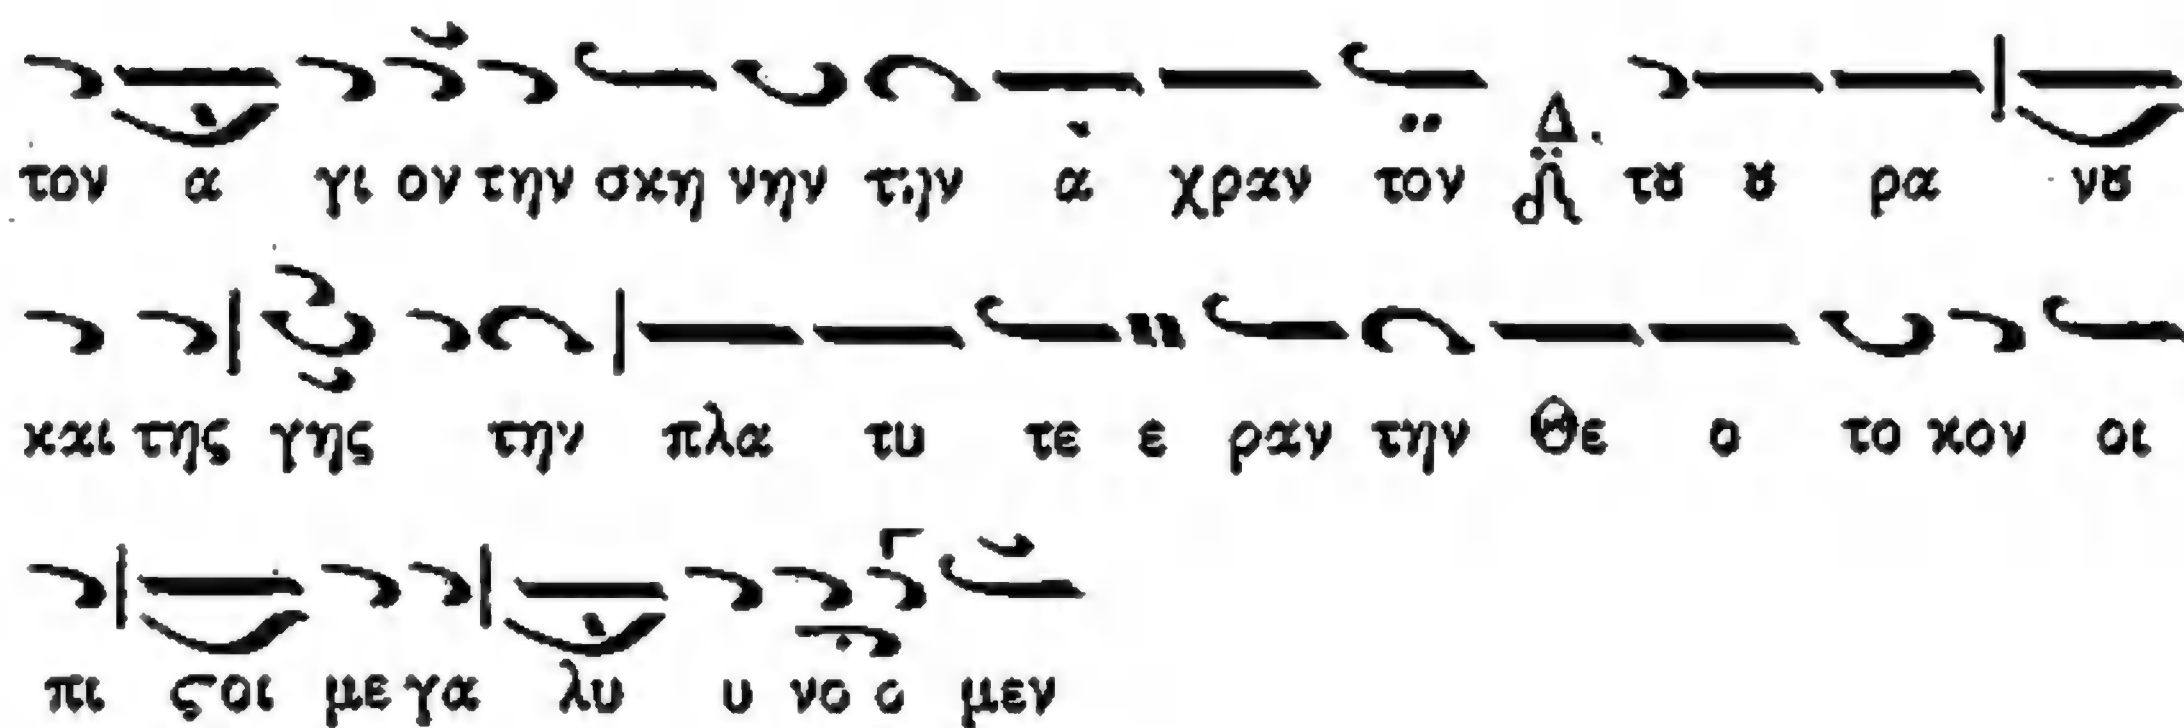 τον α γι ον την σκη νην την α χραν τον Δ τȣ ȣ ρα νȣ
και της γης την πλα τυ τε ε ραν την Θε ο το κον οι
πι ϛοι με γα λυ υ νο ο μεν